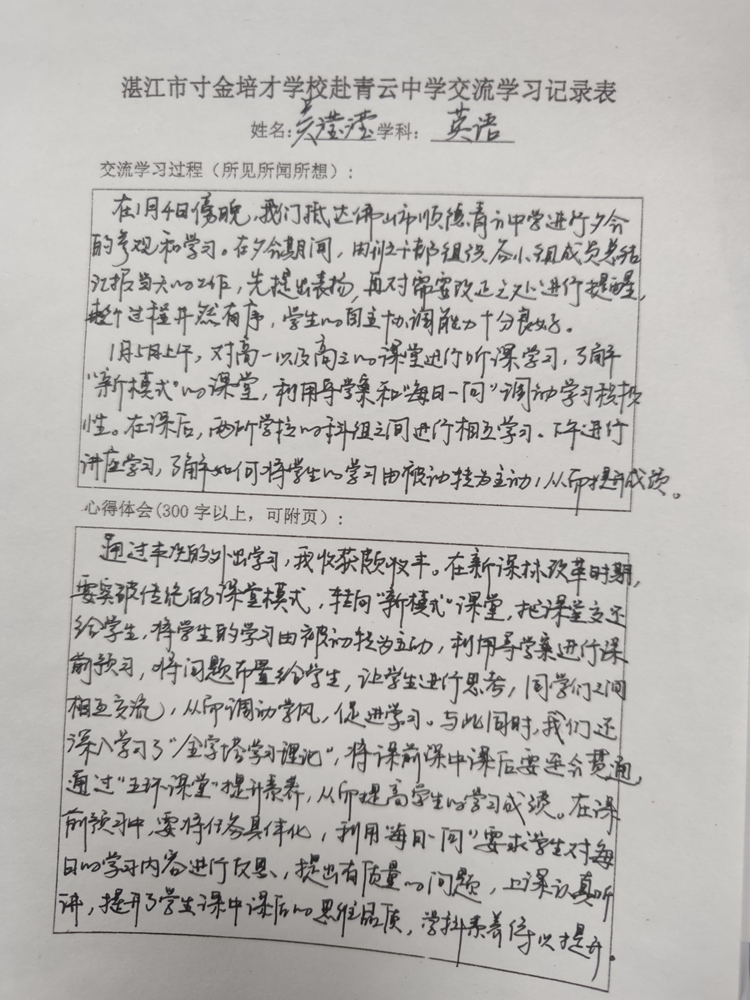 湛江市寸金培才学校赴青云中学交流学习记录表
姓名：吴滢滢 学科：英语
交流学习过程（所见所闻所想）：
在1月4日傍晚，我们抵达佛山市顺德青云中学进行夕会
的参观和学习。在夕会期间，由班干部组织各小组成员总结
汇报当天的工作，先提出表扬，再对需要改正之处进行提醒，
整个过程井然有序，学生的自主协调能力十分良好。
1月5日上午，对高一以及高二的课堂进行听课学习，了解
“新模式”的课堂，利用导学案和“每日一问”调动学习积极
性。在课后，两所学校的科组之间进行相互学习。下午进行
讲座学习，了解如何将学生的学习由被动转为主动，从而提升成绩。
心得体会(300字以上，可附页)：
通过本次的外出学习，我收获颇丰。在新课标改革时期，
要突破传统的课堂模式，转向“新模式”课堂，把课堂交还
给学生，将学生的学习由被动转为主动，利用导学案进行课
前预习，将问题布置给学生，让学生进行思考，同学们之间
相互交流，从而调动学风，促进学习。与此同时，我们还
深入学习了“金字塔学习理论”，将课前课中课后要逐个贯通，
通过“五环课堂”提升素养，从而提高学生的学习成绩。在课
前预习中，要将任务具体化，利用“每日一问”要求学生对每
日的学习内容进行反思、提出有质量的问题，上课认真听
讲，提升了学生课中课后的思维品质，学科素养得以提升。